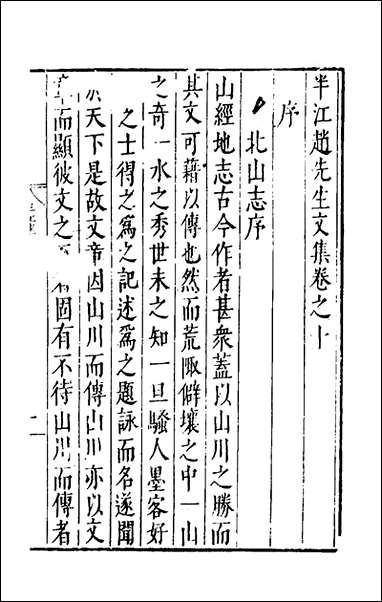 半江趙先生文集卷之十
序
北山志序
山經地志古今作者甚衆蓋以山川之勝而
其文可藉以傳也然而荒陬僻壤之中一山
之奇一水之秀世未之知一旦騷人墨客好
之士得之爲之記述爲之題詠而名遂聞
天下是故文章因山川而傳山川亦以文
章而顯彼文之固有不待山川而傳者